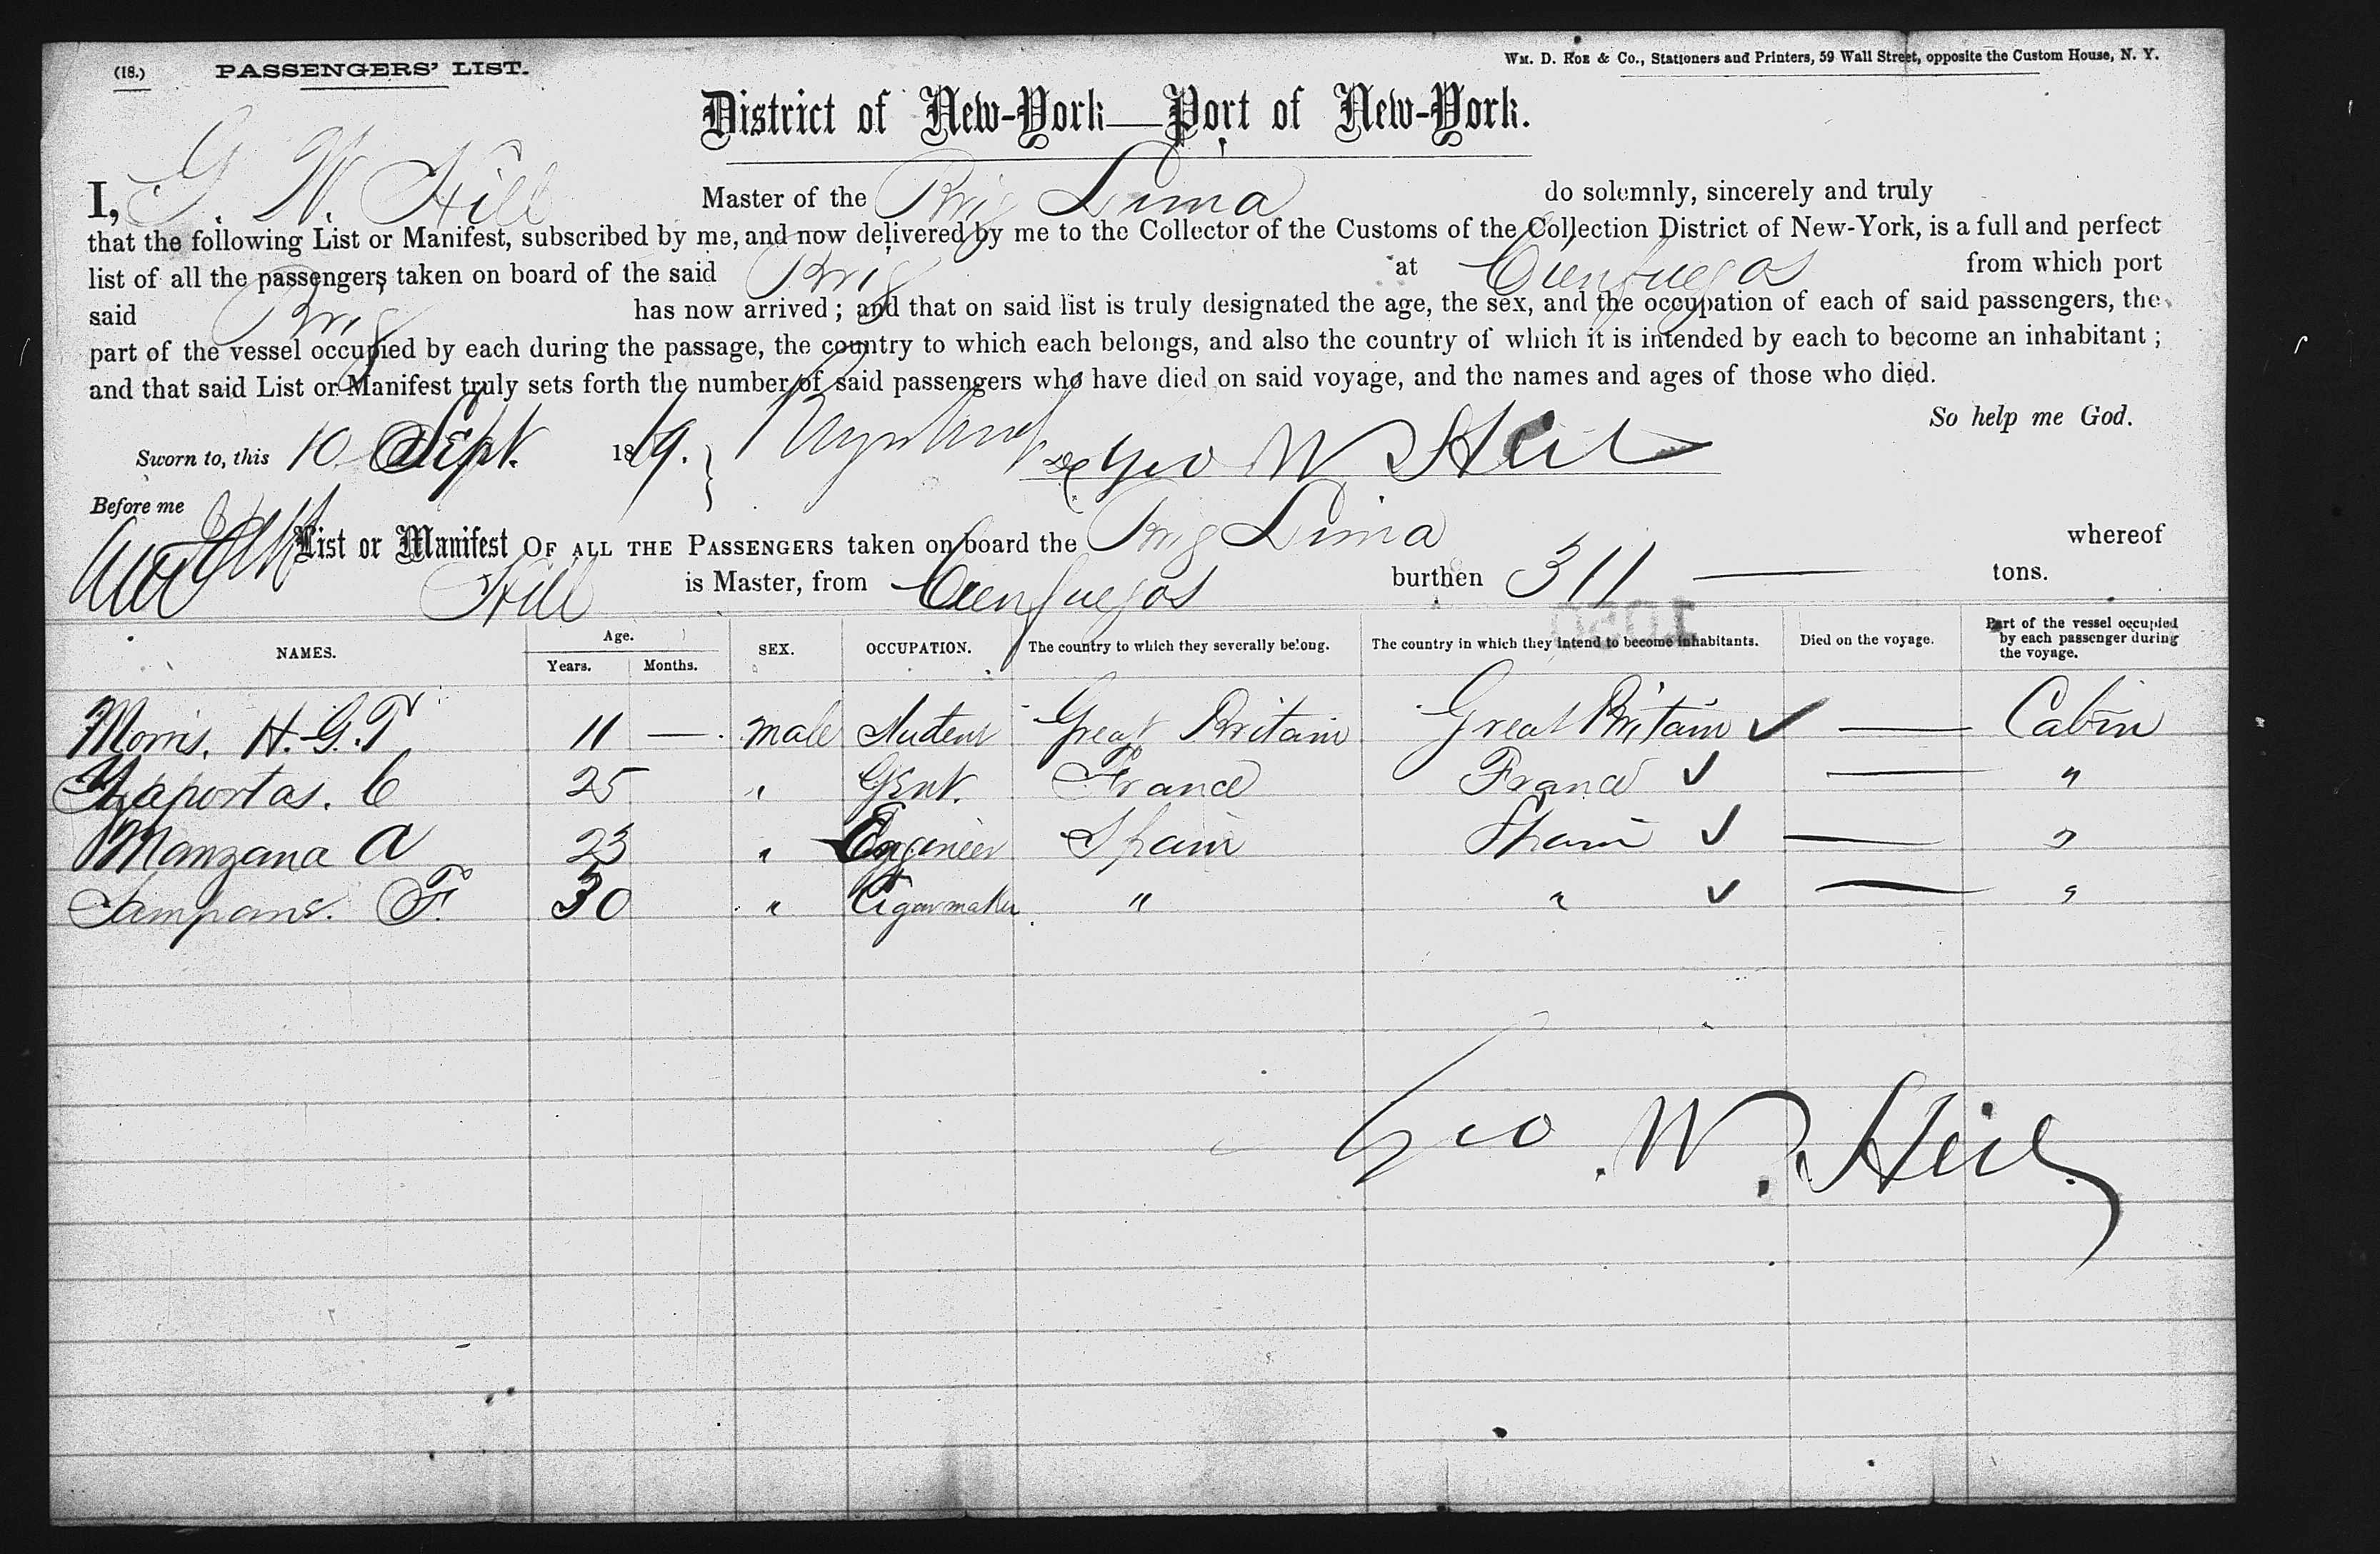 (18.) PASSENGERS' LIST. Wm. D. Roe & Co., Stationers and Printers, 59 Wall Street, opposite the Custom House, N. Y.
District of New-York—Port of New-York.
I, G. W. Hill Master of the Brig Lima do solemnly, sincerely and truly
that the following List or Manifest, subscribed by me, and now delivered by me to the Collector of the Customs of the Collection District of New-York, is a full and perfect
list of all the passengers taken on board of the said Brig at Cienfuegos from which port
said Brig has now arrived; and that on said list is truly designated the age, the sex, and the occupation of each of said passengers, the
part of the vessel occupied by each during the passage, the country to which each belongs, and also the country of which it is intended by each to become an inhabitant;
and that said List or Manifest truly sets forth the number of said passengers who have died on said voyage, and the names and ages of those who died.
So help me God.
Sworn to, this 10 Sept. 1879. } Geo W Hill
Before me
List or Manifest OF ALL THE PASSENGERS taken on board the Brig Lima whereof
Hill is Master, from Cienfuegos burthen 311 — tons.
NAMES. Age. Years. Months. SEX. OCCUPATION. The country to which they severally belong. The country in which they intend to become inhabitants. Died on the voyage. Part of the vessel occupied by each passenger during the voyage.
Morris, H. G. T 11 — male Student Great Britain Great Britain ✓ — Cabin
Laportas. C 25 " Gent. France France ✓ — "
Manzana A 23 " Engineer Spain Spain ✓ — "
F. 30 " Cigarmaker " " ✓ — "
Geo. W. Hill